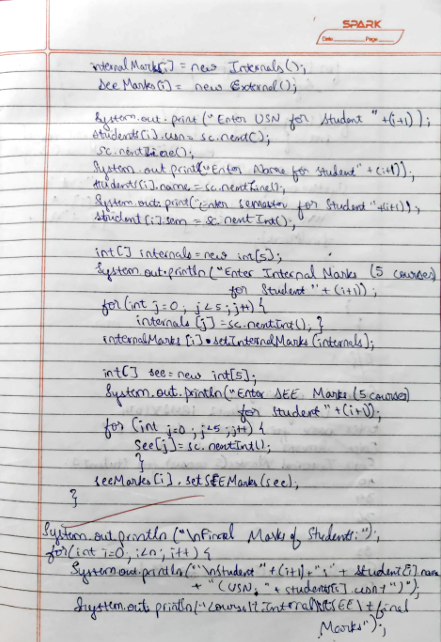 SPARK
Date Page
internalMarks[i] = new Internals();
seeMarks[i] = new External();
System.out.print("Enter USN for Student " +(i+1));
students[i].usn = sc.next();
sc.nextLine();
System.out.print("Enter Name for student" + (i+1));
students[i].name = sc.nextLine();
System.out.print("Enter semester for Student "+(i+1));
student[i].sem = sc.nextInt();
int[] internals = new int[5];
System.out.println("Enter Internal Marks (5 courses)
for Student " + (i+1));
for(int j=0; j<5; j++) {
internals[j] = sc.nextInt(); }
internalMarks[i].setInternalMarks(internals);
int[] see = new int[5];
System.out.println("Enter SEE Marks (5 courses)
for student " + (i+1));
for (int j=0; j<5; j++) {
see[j] = sc.nextInt();
}
seeMarks[i].setSEEMarks(see);
}
System.out.println("\nFinal Marks of Students:");
for(int i=0; i<n; i++) {
System.out.println("\nStudent " + (i+1) + ":" + student[i].name
+ "(USN: " + students[i].usn + ")");
System.out.println("Course\t Internal\t SEE\t final
Marks");